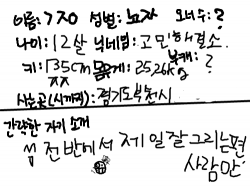 이름: ㄱㅈㅇ 성별: 남자 오너수: ?
나이: 12살 닉네임: 고민해결소
키: 135cm 몸무게: 25.26kg 복캐: ?
사는곳(시까지): 경기도부천시
간략한 자기 소개
전 반에서 제일 잘 그리는 편
사람만